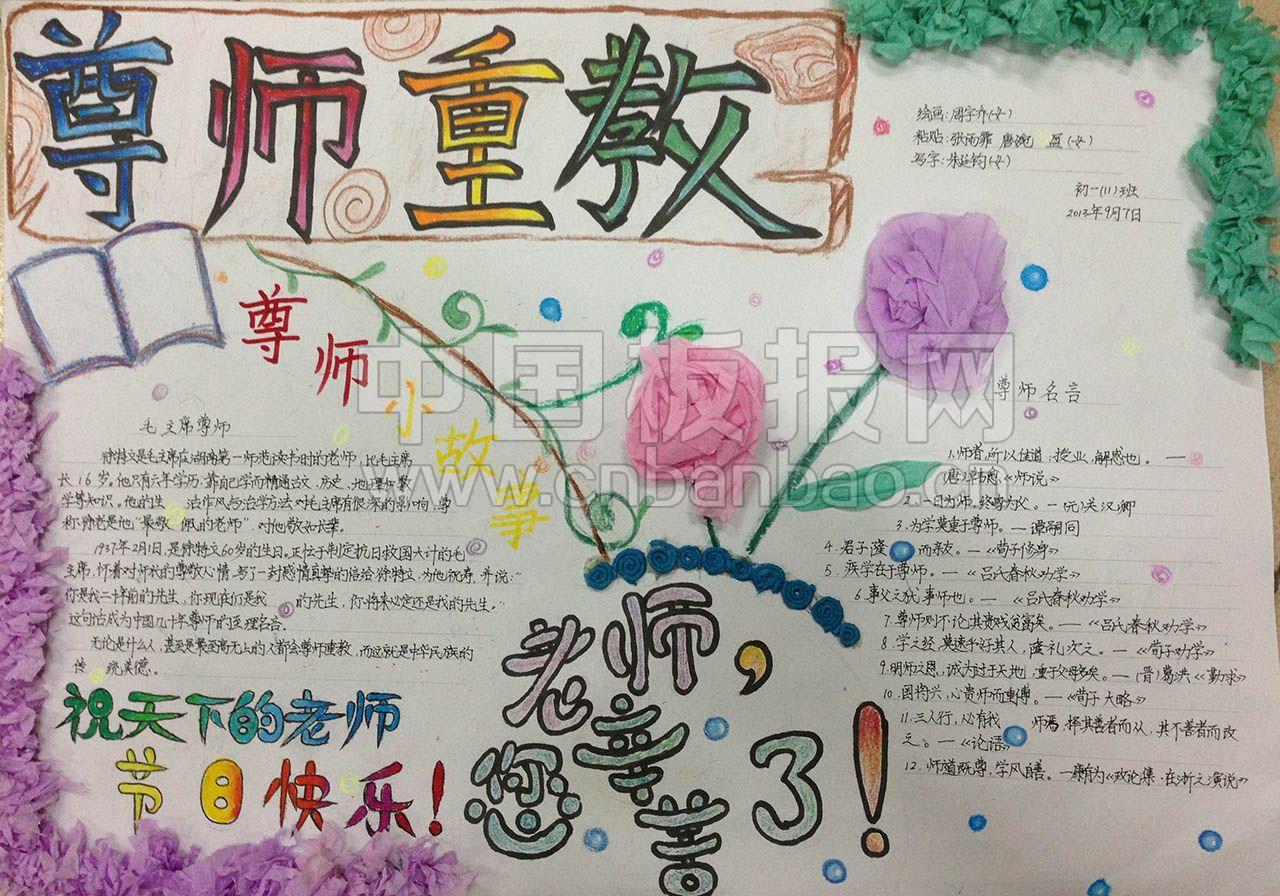 尊师重教
绘画:周宇乔(女)
粘贴:张雨霏 唐婉 盈(女)
写字:朱延钧(女)
初一(11)班
2013年9月7日
尊师小故事
毛主席尊师
徐特立是毛主席在湖南第一师范读书时的老师,比毛主席
长16岁。他只有六年学历,靠自己学而精通古文、历史、地理和数
学等知识。他的生 治作风与治学方法对毛主席有很深的影响,尊
称徐老是他"最敬 佩的老师",对他敬和大辈。
1937年2月1日,是徐特立60岁的生日。正忙于制定抗日救国大计的毛
主席,怀着对师长的尊敬心情,写了一封感情真挚的信给徐特立,为他祝寿,并说:"
你是我二十年前的先生,你现在们是我 的先生,你将来必定还是我的先生。"
这句话成为中国几十年尊师的至理名言。
无论是什么人,甚至是最至高无上的人都会尊师重教,而这就是中华民族的
传 统美德。
祝天下的老师
节日快乐!
老师,
您辛苦了!
尊师名言
1.师者,所以传道,授业,解惑也。 —
(唐)韩愈《师说》
2.一日为师,终身为父。—(元)关汉卿
3.为学莫重于尊师。— 谭嗣同
4.君子隆 而亲友。—《荀子修身》
5.疾学在于尊师。—《吕氏春秋劝学》
6.事父之犹事师也。—《吕氏春秋劝学》
7.尊师则不论其贵贱贫富矣。—《吕氏春秋劝学》
8.学之经,莫速乎好其人,隆礼次之。—《荀子劝学》
9.明师之恩,诚为过于天地,重于父母多矣。—(晋)葛洪《勤求》
10.国将兴,心贵师而重傅。—《荀子 大略》
11.三人行,必有我 师焉,择其善者而从,其不善者而改
之。—《论语》
12.师道既尊,学风自善。—康有为《政论集·在浙之演说》
中国板报网
www.cnbanbao.cn